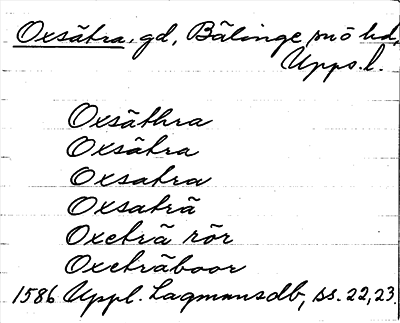 Oxsätra, gd, Bälinge sn o hd,
Upps. l.
Oxsäthra
Oxsätra
Oxsatra
Oxsaträ
Oxeträ rör
Oxeträboor
1586 Uppl. Lagmansdb, ss. 22, 23.